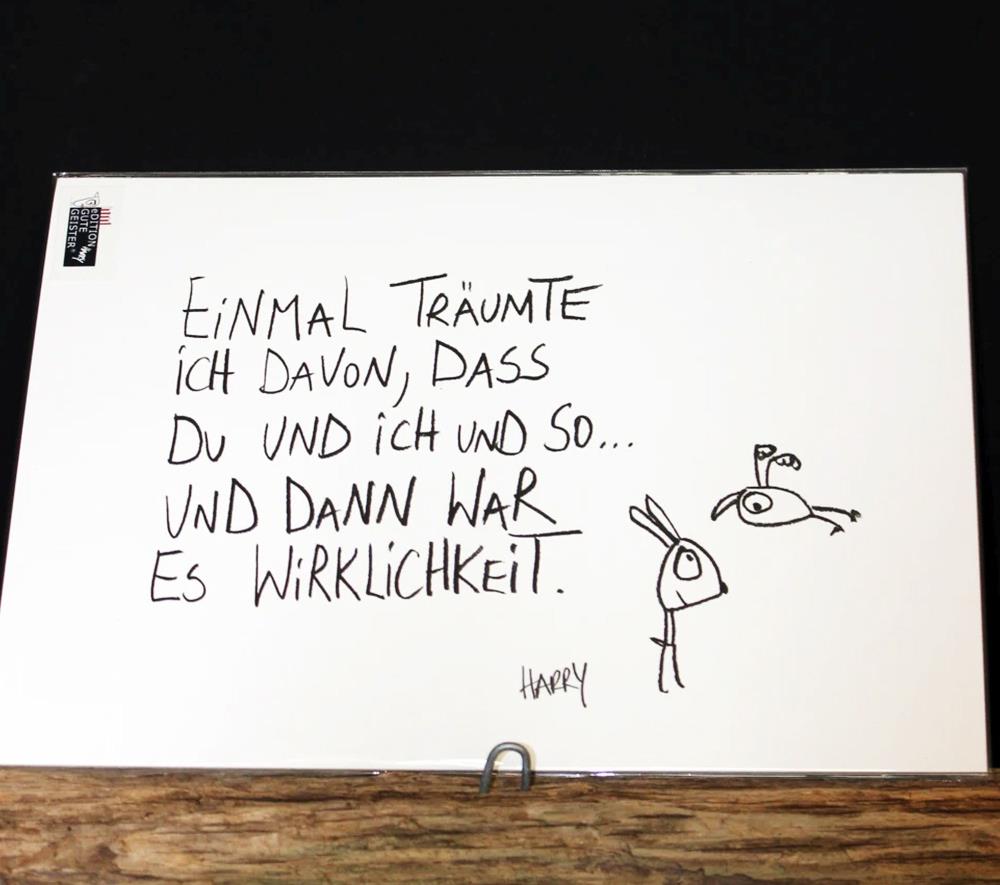 EDITION
GUTE
GEISTER®
EINMAL TRÄUMTE
ICH DAVON, DASS
DU UND ICH UND SO...
UND DANN WAR
ES WIRKLICHKEIT.
HARRY